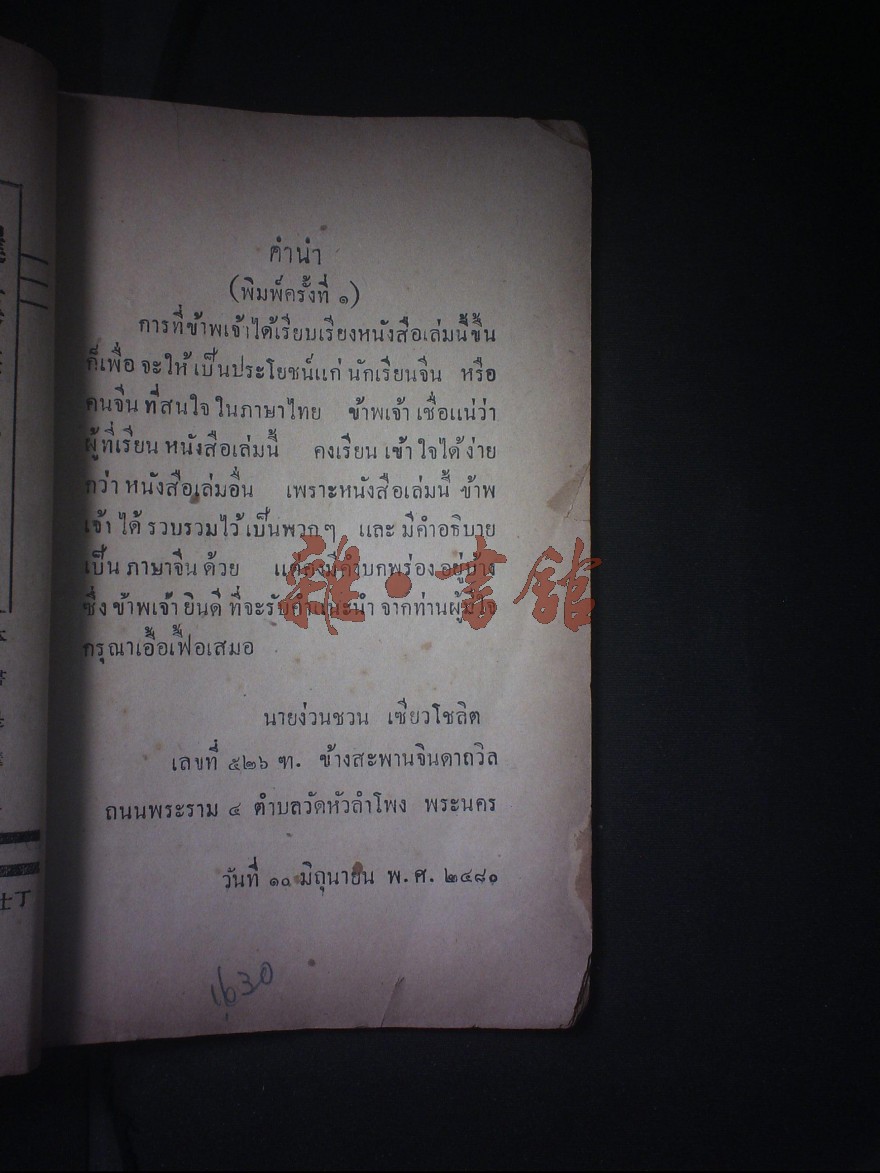 คำนำ
(พิมพ์ครั้งที่ ๑)
การที่ข้าพเจ้าได้เรียบเรียงหนังสือเล่มนี้ขึ้น
ก็เพื่อ จะให้ เป็นประโยชน์แก่ นักเรียนจีน หรือ
คนจีน ที่สนใจ ในภาษาไทย ข้าพเจ้า เชื่อแน่ว่า
ผู้ที่เรียน หนังสือเล่มนี้ คงเรียน เข้า ใจได้ ง่าย
กว่า หนังสือเล่มอื่น เพราะหนังสือเล่มนี้ ข้าพ
เจ้า ได้ รวบรวมไว้ เป็นพวกๆ และ มีคำอธิบาย
เป็น ภาษาจีน ด้วย แต่คงมีคำบกพร่อง อยู่บ้าง
ซึ่ง ข้าพเจ้า ยินดี ที่จะรับคำแนะนำ จากท่านผู้มีใจ
กรุณาเอื้อเฟื้อเสมอ
นายง่วนชวน เซียวโชลิต
เลขที่ ๕๒๖ ฑ. ข้างสะพานจินดาถวิล
ถนนพระราม ๔ ตำบลวัดหัวลำโพง พระนคร
วันที่ มิถุนายน พ.ศ. ๒๔๘๐
雜·書館
仕丁